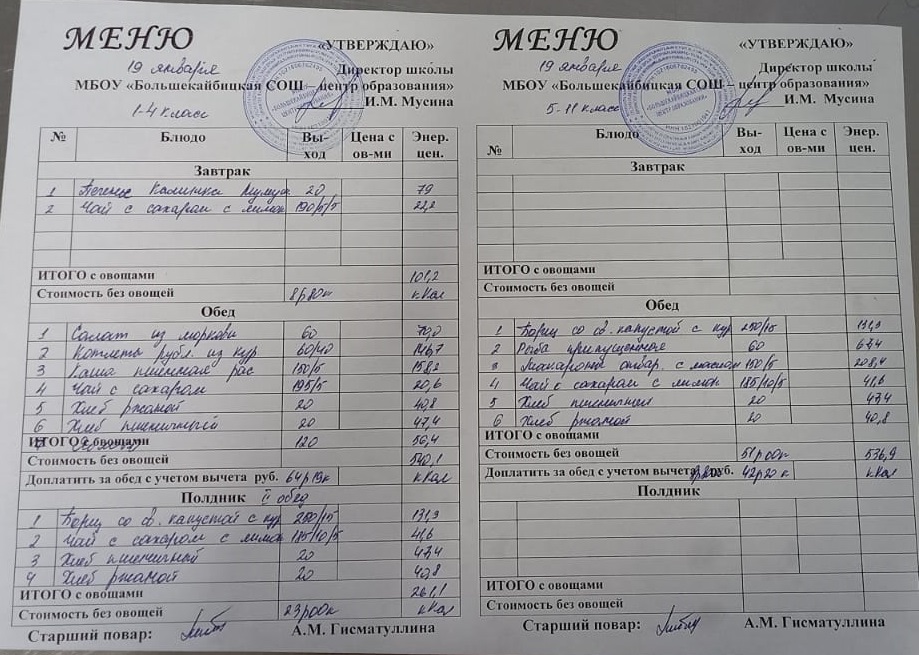 МЕНЮ
«УТВЕРЖДАЮ»
19 января
Директор школы
МБОУ «Большекайбицкая СОШ – центр образования»
1-4 класс
И.М. Мусина
№ Блюдо Вы-ход Цена с ов-ми Энер. цен.
Завтрак
1 Печенье Калинка 20 79
2 Чай с сахаром с лимон 190/5/5 22,2
ИТОГО с овощами 101,2
Стоимость без овощей 8р80к кКал
Обед
1 Салат из моркови 60 70,0
2 Котлеты рубл. из кур 60/40 146,7
3 Каша пшенная рас 150/5 158,2
4 Чай с сахаром 195/5 20,6
5 Хлеб ржаной 20 40,8
6 Хлеб пшеничный 20 47,4
ИТОГО с овощами 120 56,4
Стоимость без овощей 540,1
Доплатить за обед с учетом вычета руб. 64р19к кКал
Полдник II обед
1 Борщ со св. капустой с кур 250/15 131,3
2 Чай с сахаром с лимон 185/10/5 41,6
3 Хлеб пшеничный 20 47,4
4 Хлеб ржаной 20 40,8
ИТОГО с овощами 261,1
Стоимость без овощей 23р00к кКал
Старший повар: А.М. Гисматуллина
МЕНЮ
«УТВЕРЖДАЮ»
19 января
Директор школы
МБОУ «Большекайбицкая СОШ – центр образования»
5-11 класс
И.М. Мусина
№ Блюдо Вы-ход Цена с ов-ми Энер. цен.
Завтрак
ИТОГО с овощами
Стоимость без овощей
Обед
1 Борщ со св. капустой с кур 250/15 131,3
2 Рыба припущенная 60 67,4
3 Макароны отвар. с маслом 150/5 208,4
4 Чай с сахаром с лимон 185/10/5 41,6
5 Хлеб пшеничный 20 47,4
6 Хлеб ржаной 20 40,8
ИТОГО с овощами
Стоимость без овощей 51р00к 536,9
Доплатить за обед с учетом вычета руб. 42р20к кКал
Полдник
ИТОГО с овощами
Стоимость без овощей
Старший повар: А.М. Гисматуллина